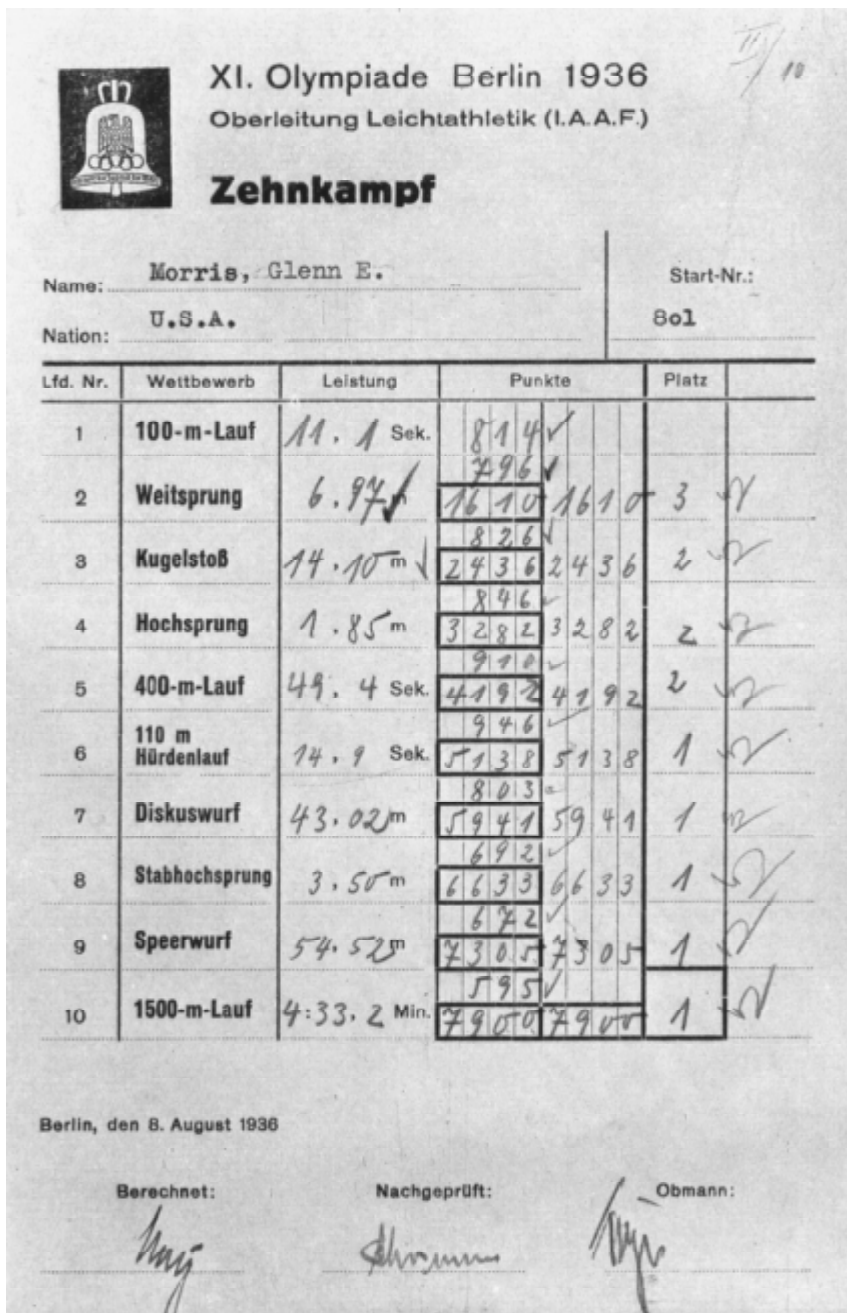 XI. Olympiade Berlin 1936
Oberleitung Leichtathletik (I.A.A.F.)
Zehnkampf
Name: Morris, Glenn E.
Start-Nr.:
Nation: U.S.A.
8o1
Lfd. Nr. Wettbewerb Leistung Punkte Platz
1 100-m-Lauf 11.1 Sek. 814
796
2 Weitsprung 6.97 m 1610 1610 3
826
3 Kugelstoß 14.10 m 2436 2436 2
846
4 Hochsprung 1.85 m 3282 3282 2
910
5 400-m-Lauf 49.4 Sek. 4192 4192 2
946
6 110 m Hürdenlauf 14.9 Sek. 5138 5138 1
803
7 Diskuswurf 43.02 m 5941 5941 1
692
8 Stabhochsprung 3.50 m 6633 6633 1
672
9 Speerwurf 54.52 m 7305 7305 1
595
10 1500-m-Lauf 4:33.2 Min. 7900 7900 1
Berlin, den 8. August 1936
Berechnet: Nachgeprüft: Obmann: